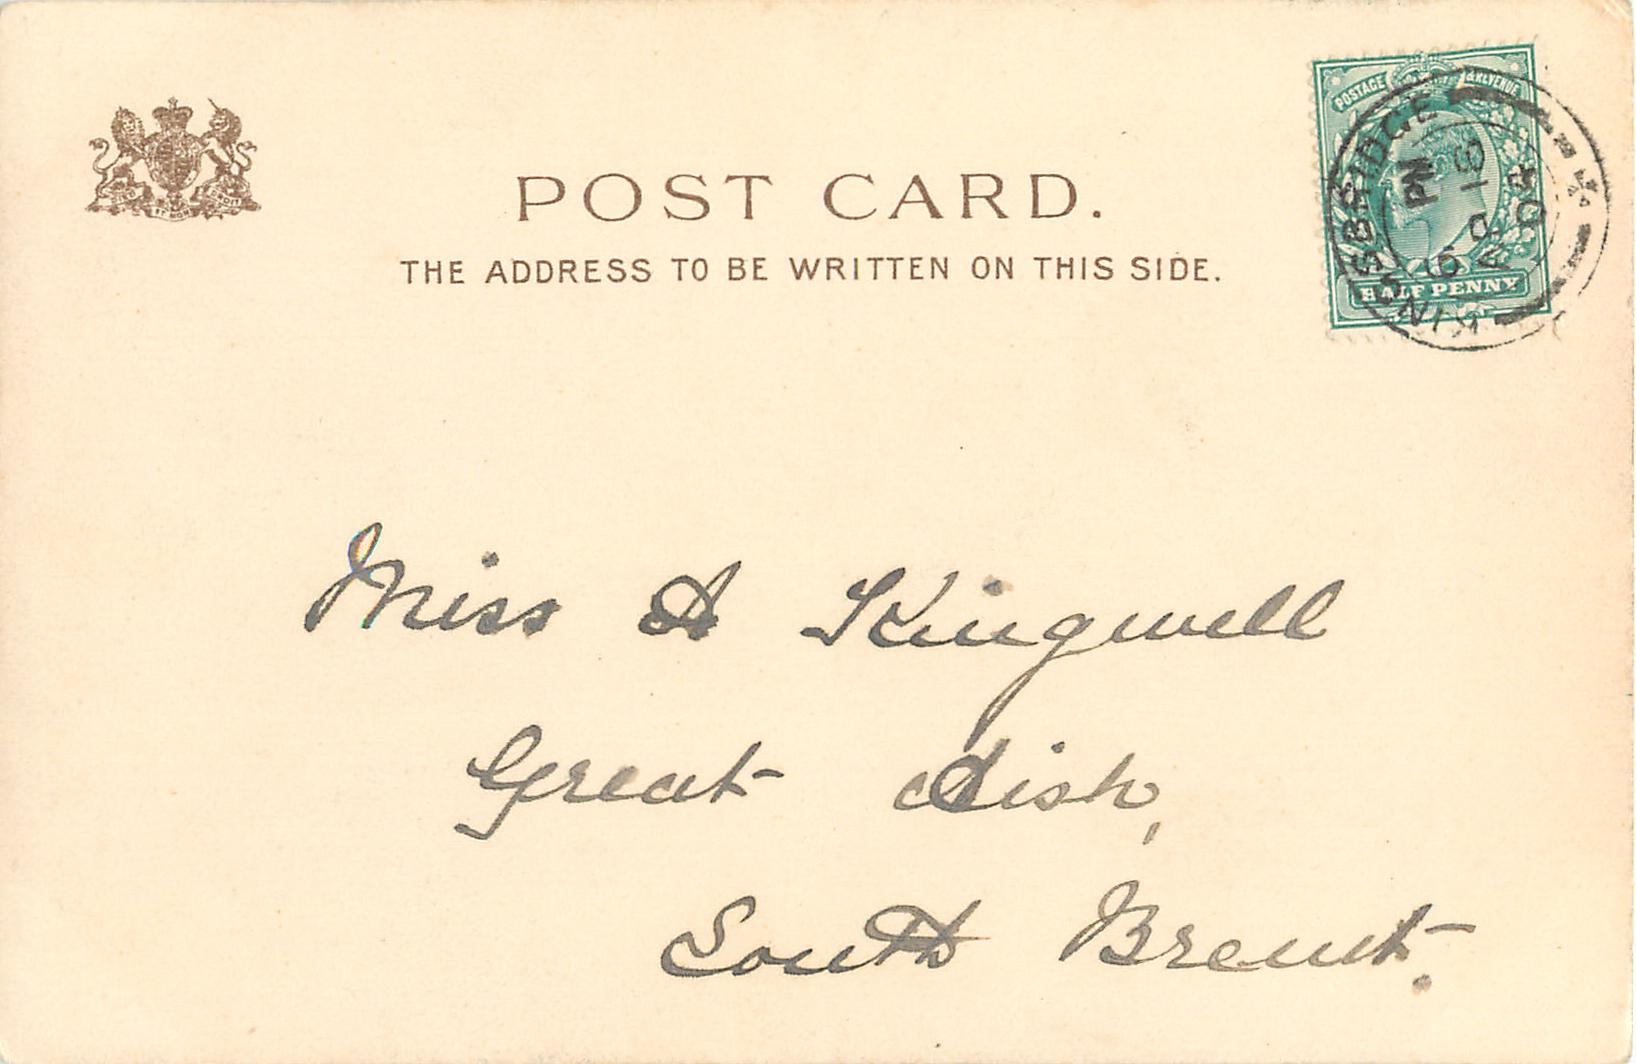 POST CARD.
THE ADDRESS TO BE WRITTEN ON THIS SIDE.
POSTAGE & REVENUE
HALF PENNY
KINGSBRIDGE
6 PM
AP 16
04
Miss A Kingwell
Great Aish,
South Brent.